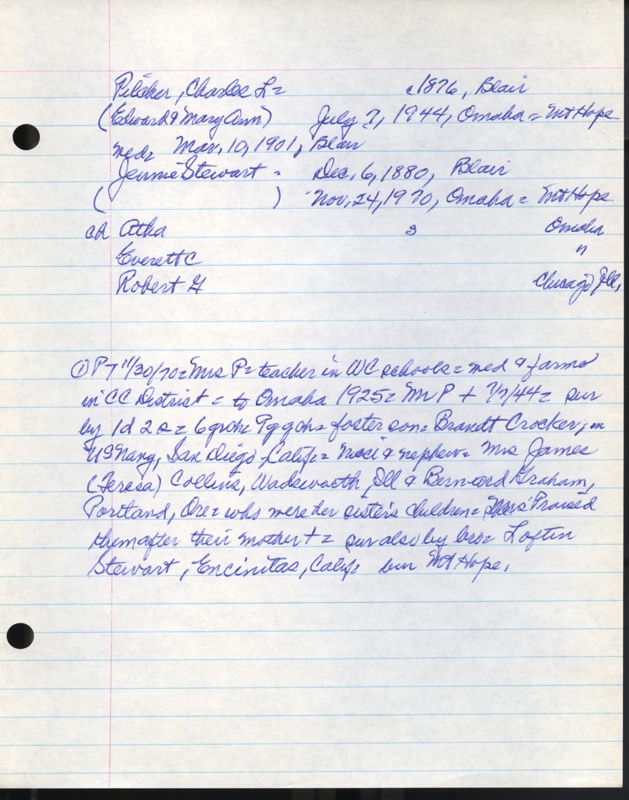 Pilcher, Charles L = c1876, Blair
(Edward & Mary Ann) July 7, 1944, Omaha = Mt Hope
med = Mar, 10, 1901, Blair
Jennie Stewart = Dec. 6, 1880, Blair
( ) Nov, 24, 1970, Omaha = Mt Hope
ch Atha s Omaha
Everett C "
Robert G Chicago, Ill,
① PT 11/30/70 = Mrs P = teacher in WC schools = med & farmed
in CC District = to Omaha 1925 = Mr P + 7/7/44 = sur
by 1d 2 s = 6 grch 7 ggch = foster son = Brandt Crocker, in
US Navy, San Diego, Calif = niece & nephew = Mrs James
(Teresa) Collins, Wadsworth, Ill & Bernard Graham,
Portland, Ore = who were her sister's children = Mrs P raised
them after their mother + = sur also by bro = Loftin
Stewart, Encinitas, Calif bur Mt Hope.